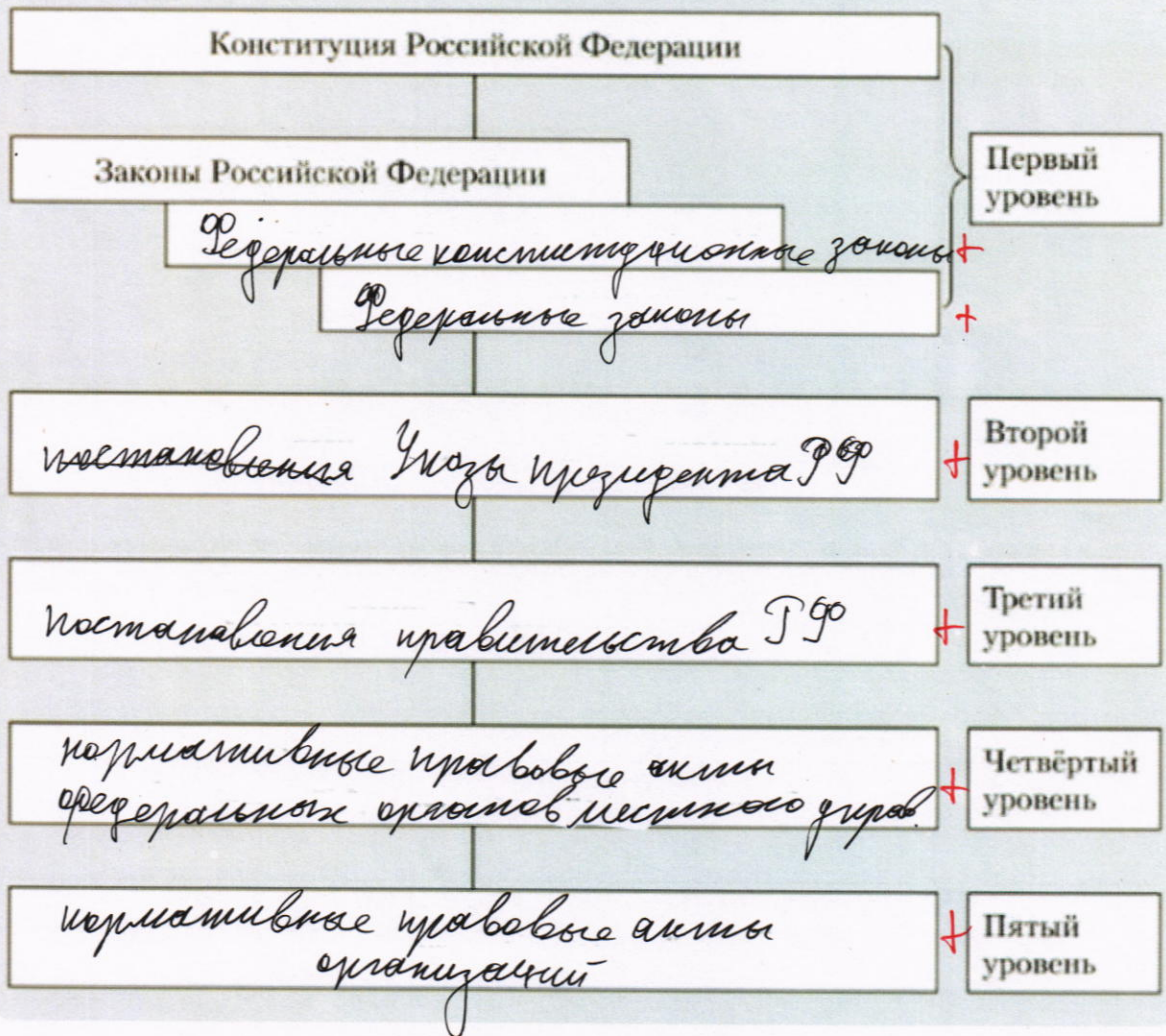 Конституция Российской Федерации
Законы Российской Федерации
Первый
уровень
Федеральные конституционные законы +
Федеральные законы +
постановления Указы президента РФ +
Второй
уровень
постановления правительства РФ +
Третий
уровень
нормативные правовые акты
федеральных органов местного управ. +
Четвёртый
уровень
нормативные правовые акты
организаций +
Пятый
уровень